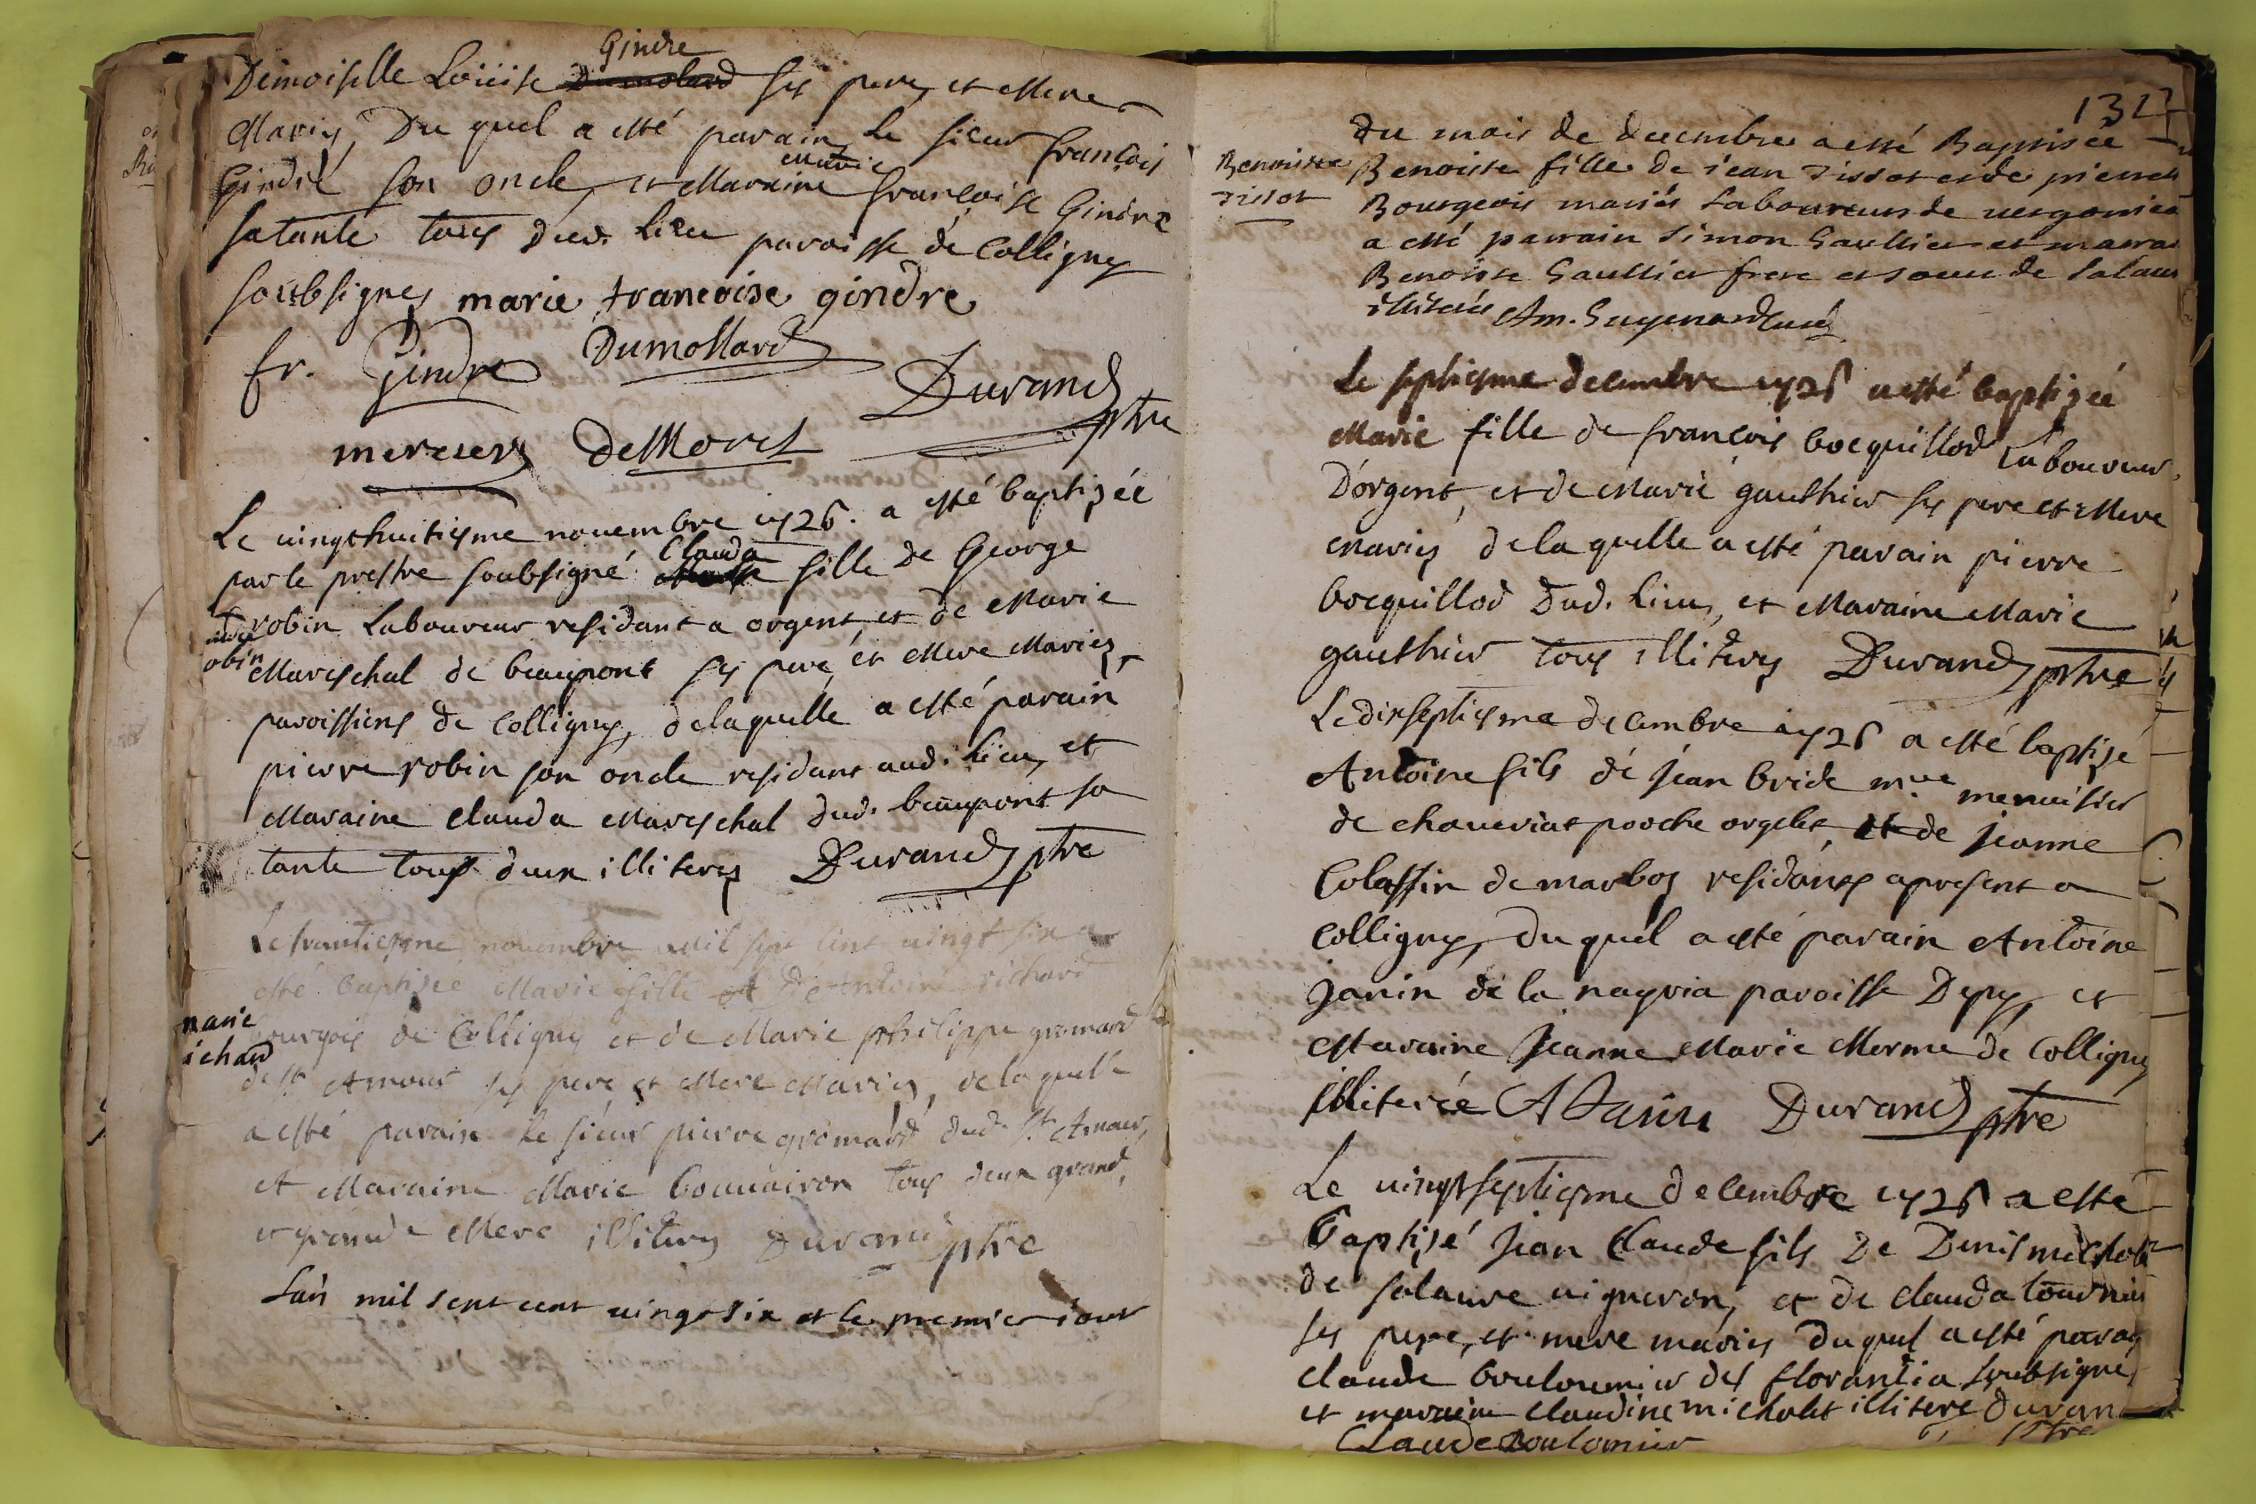 Gindre
Demoiselle Loüise Dumolard ses pere, et Mere
Mariés, Du quel a esté parain le sieur françois
Gindre son oncle, et Maraine marie françoise Gindre
sa tante tous dud. lieu paroisse de Colligny
soubsignes marie francoise gindre
fr. Gindre Dumollard Durand ptre
mercier DeMoret
Le vingthuitiesme nouembre 1726. a esté baptizée
par le prestre soubsigné Clauda fille de George
robin Laboureur residant a orgent, et de Marie
obin
Mareschal de beaupont ses pere, et Mere Mariez,
paroissiens de Colligny, delaquelle a esté parain
pierre robin son oncle residant aud. lieu, et
Maraine Clauda Mareschal dud. beaupont sa
tante tous deux illiteres Durand ptre
Le trantiesme nouembre mil sept cent uingt six a
esté baptizée Marie fille de Antoine richard
marie
ourgois de Colligny et de Marie philippe gromard
ichard
de St. Amour ses pere et Mere Mariez, delaquelle
a esté parain le sieur pierre gromard dud. St. Amour,
et Maraine Marie bouuairon tous deux grand,
et grande Mere illiteres Durand ptre
L'an mil sept cent uingt six et le premier iour
132
du mois de decembre a esté Baptisée
Benoiste
Tissot
Benoiste fille de iean Tissot et de pierrett
Bourgeois mariés laboureurs de uergonica
a esté parrain simon Gaultier et marrai
Benoiste Gaultier frere et soeur de salaur
illiterés Am. Guyenard curé
Le septiesme decembre 1726 a esté baptizée
Marie fille de françois bocquillod Laboureur
D'orgent, et de Marie gauthier ses pere et Mere
mariés delaquelle a esté parain pierre
bocquillod Dud. lieu, et Maraine Marie
gauthier tous illiteres Durand ptre
Le dixseptiesme decembre 1726 a esté baptizé
Antoine fils de Jean bride m.re menuisier
de chaueriat proche orgelet, et de Jeanne
Colassin de marboz residants apresent a
Colligny, du quel a esté parain Antoine
Janin de la nayria paroisse Depy, et
Maraine Jeanne Marie Merme de Colligny
illiterée A Janin Durand ptre
Le uingtseptiesme decembre 1726 a esté
Baptizé Jean Claude fils De Denis michol
de salaure uigneron, et de clauda tournier
ses pere, et mere mariés duquel a esté parai
claude bouloumier des florantia soubsigné,
et maraine claudine micholet illitere Duran
Claude Boulomier ptre